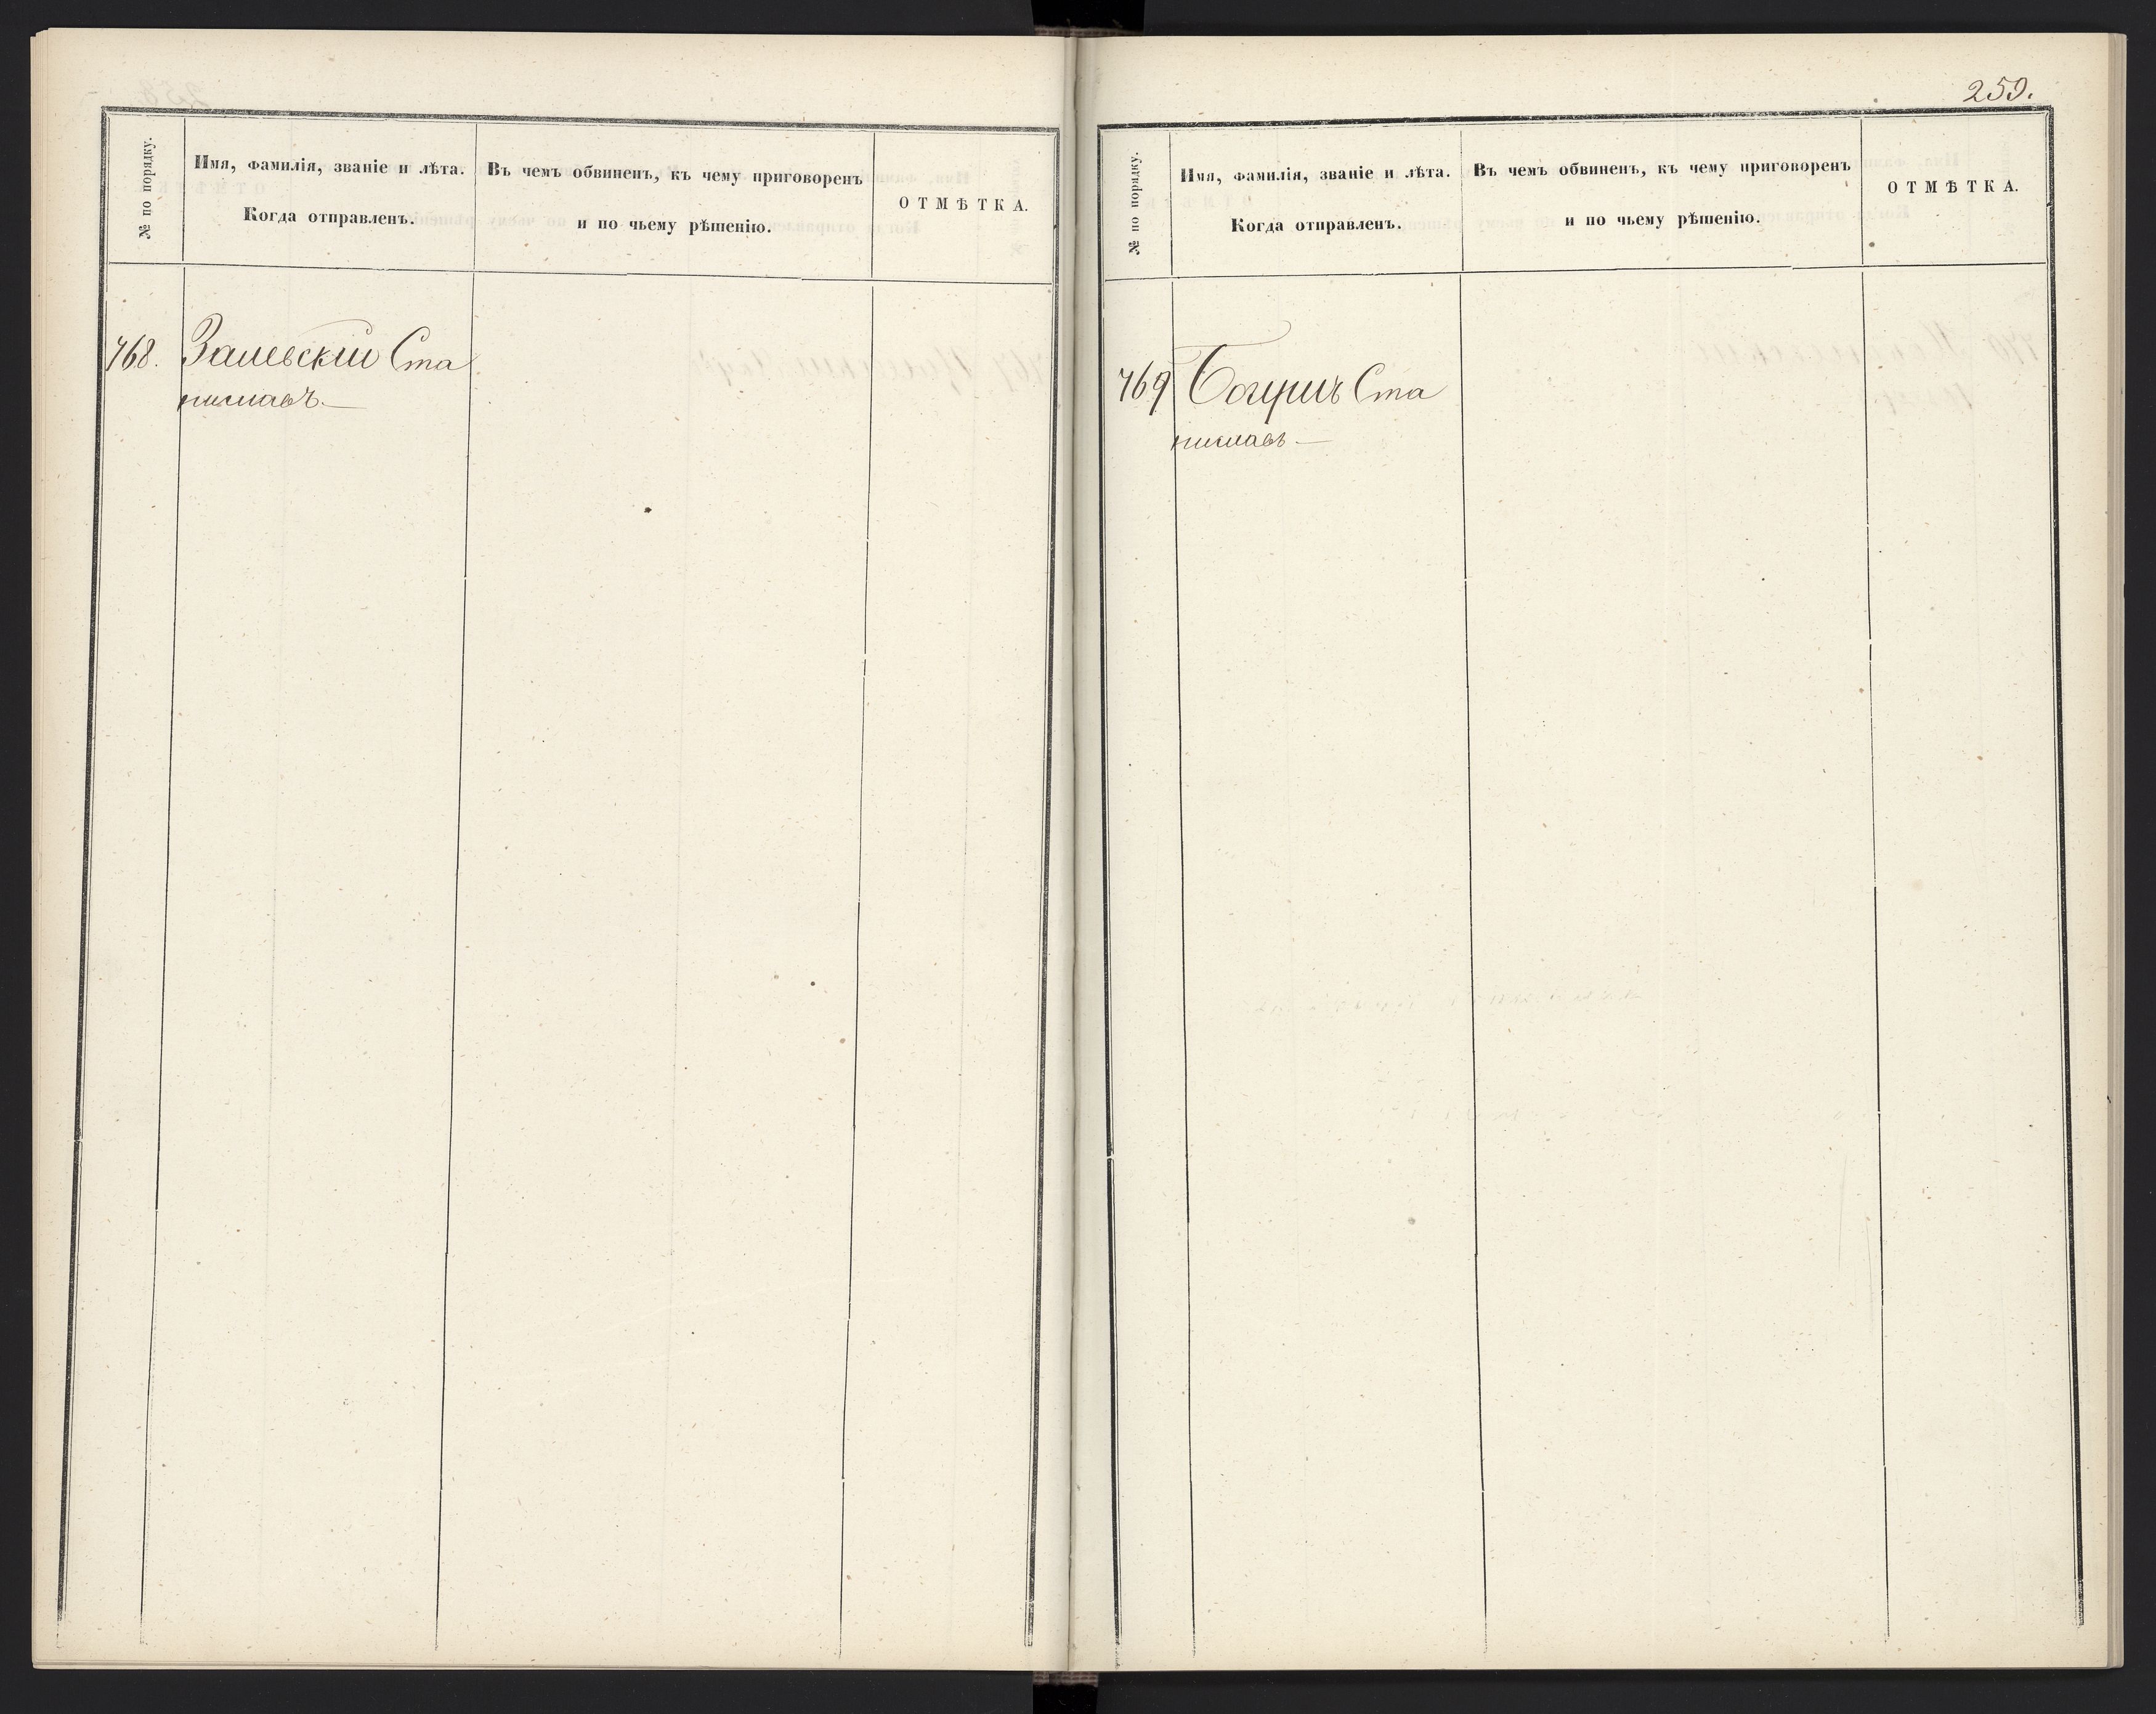 № по порядку.
Имя, фамилія, званіе и лѣта.
Когда отправленъ.
Въ чемъ обвиненъ, къ чему приговоренъ
и по чьему рѣшенію.
ОТМѢТКА.
768.
Залевскій Ста
ниславъ.—
259.
№ по порядку.
Имя, фамилія, званіе и лѣта.
Когда отправленъ.
Въ чемъ обвиненъ, къ чему приговоренъ
и по чьему рѣшенію.
ОТМѢТКА.
769
Ста
ниславъ—